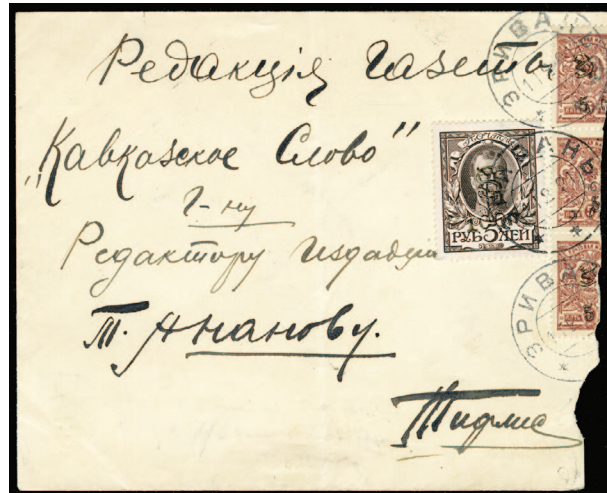 Редакція Газеты
„Кавказское Слово"
Г-ну
Редактору Издателю
Т. Ананову.
Тифлис
5 РУБЛЕЙ
ЭРИВАНЬ
5
ЭРИВАНЬ
ЭРИВАНЬ
5